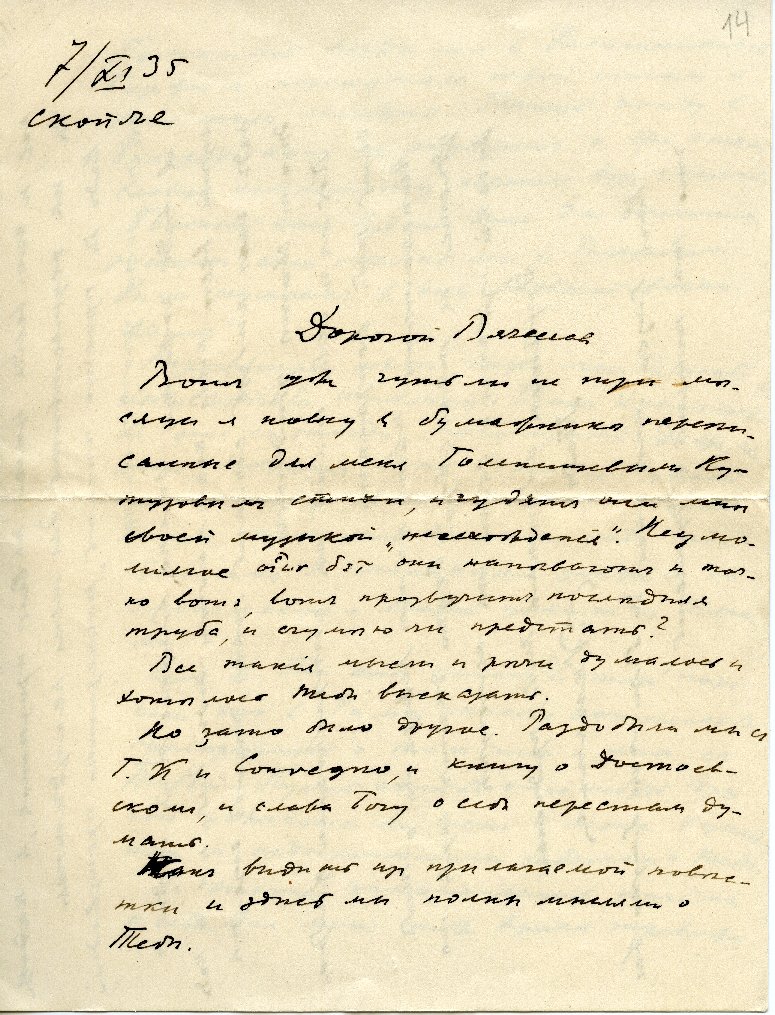 14
7/XI 35
Скопле
Дорогой Вячеслав
Вотъ уже чуть ли не три мѣ-
сяца я ношу въ бумажникѣ перепи-
санные для меня Голенищевымъ Ку-
тузовымъ стихи, и гудятъ они мнѣ
своей музыкой „нисхожденія“. Неумо-
лимое они напѣваютъ и
вотъ, вотъ прозвучитъ послѣдняя
труба, и сумѣю ли предстать?
Все такія мысли и рѣчи думалось и
хотѣлось Тебѣ высказать.
Но зато было другое. Раздобыли мы съ
Г. К и Сонъ и книгу о Достоев-
скомъ, и слава Богу о себѣ пересталъ ду-
мать.
Какъ видишь изъ прилагаемой повѣс-
тки и здѣсь мы полны мыслями о
Тебѣ.